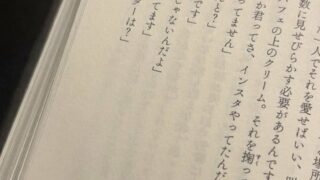 た一人でそれを愛せばいい、
数に見せびらかす必要があるんです
フェの上のクリーム。それを掬っ
か君ってさ、インスタやってたんだ
ってません」
と?」
です」
じゃないんだよ」
てます」
ダーは?」